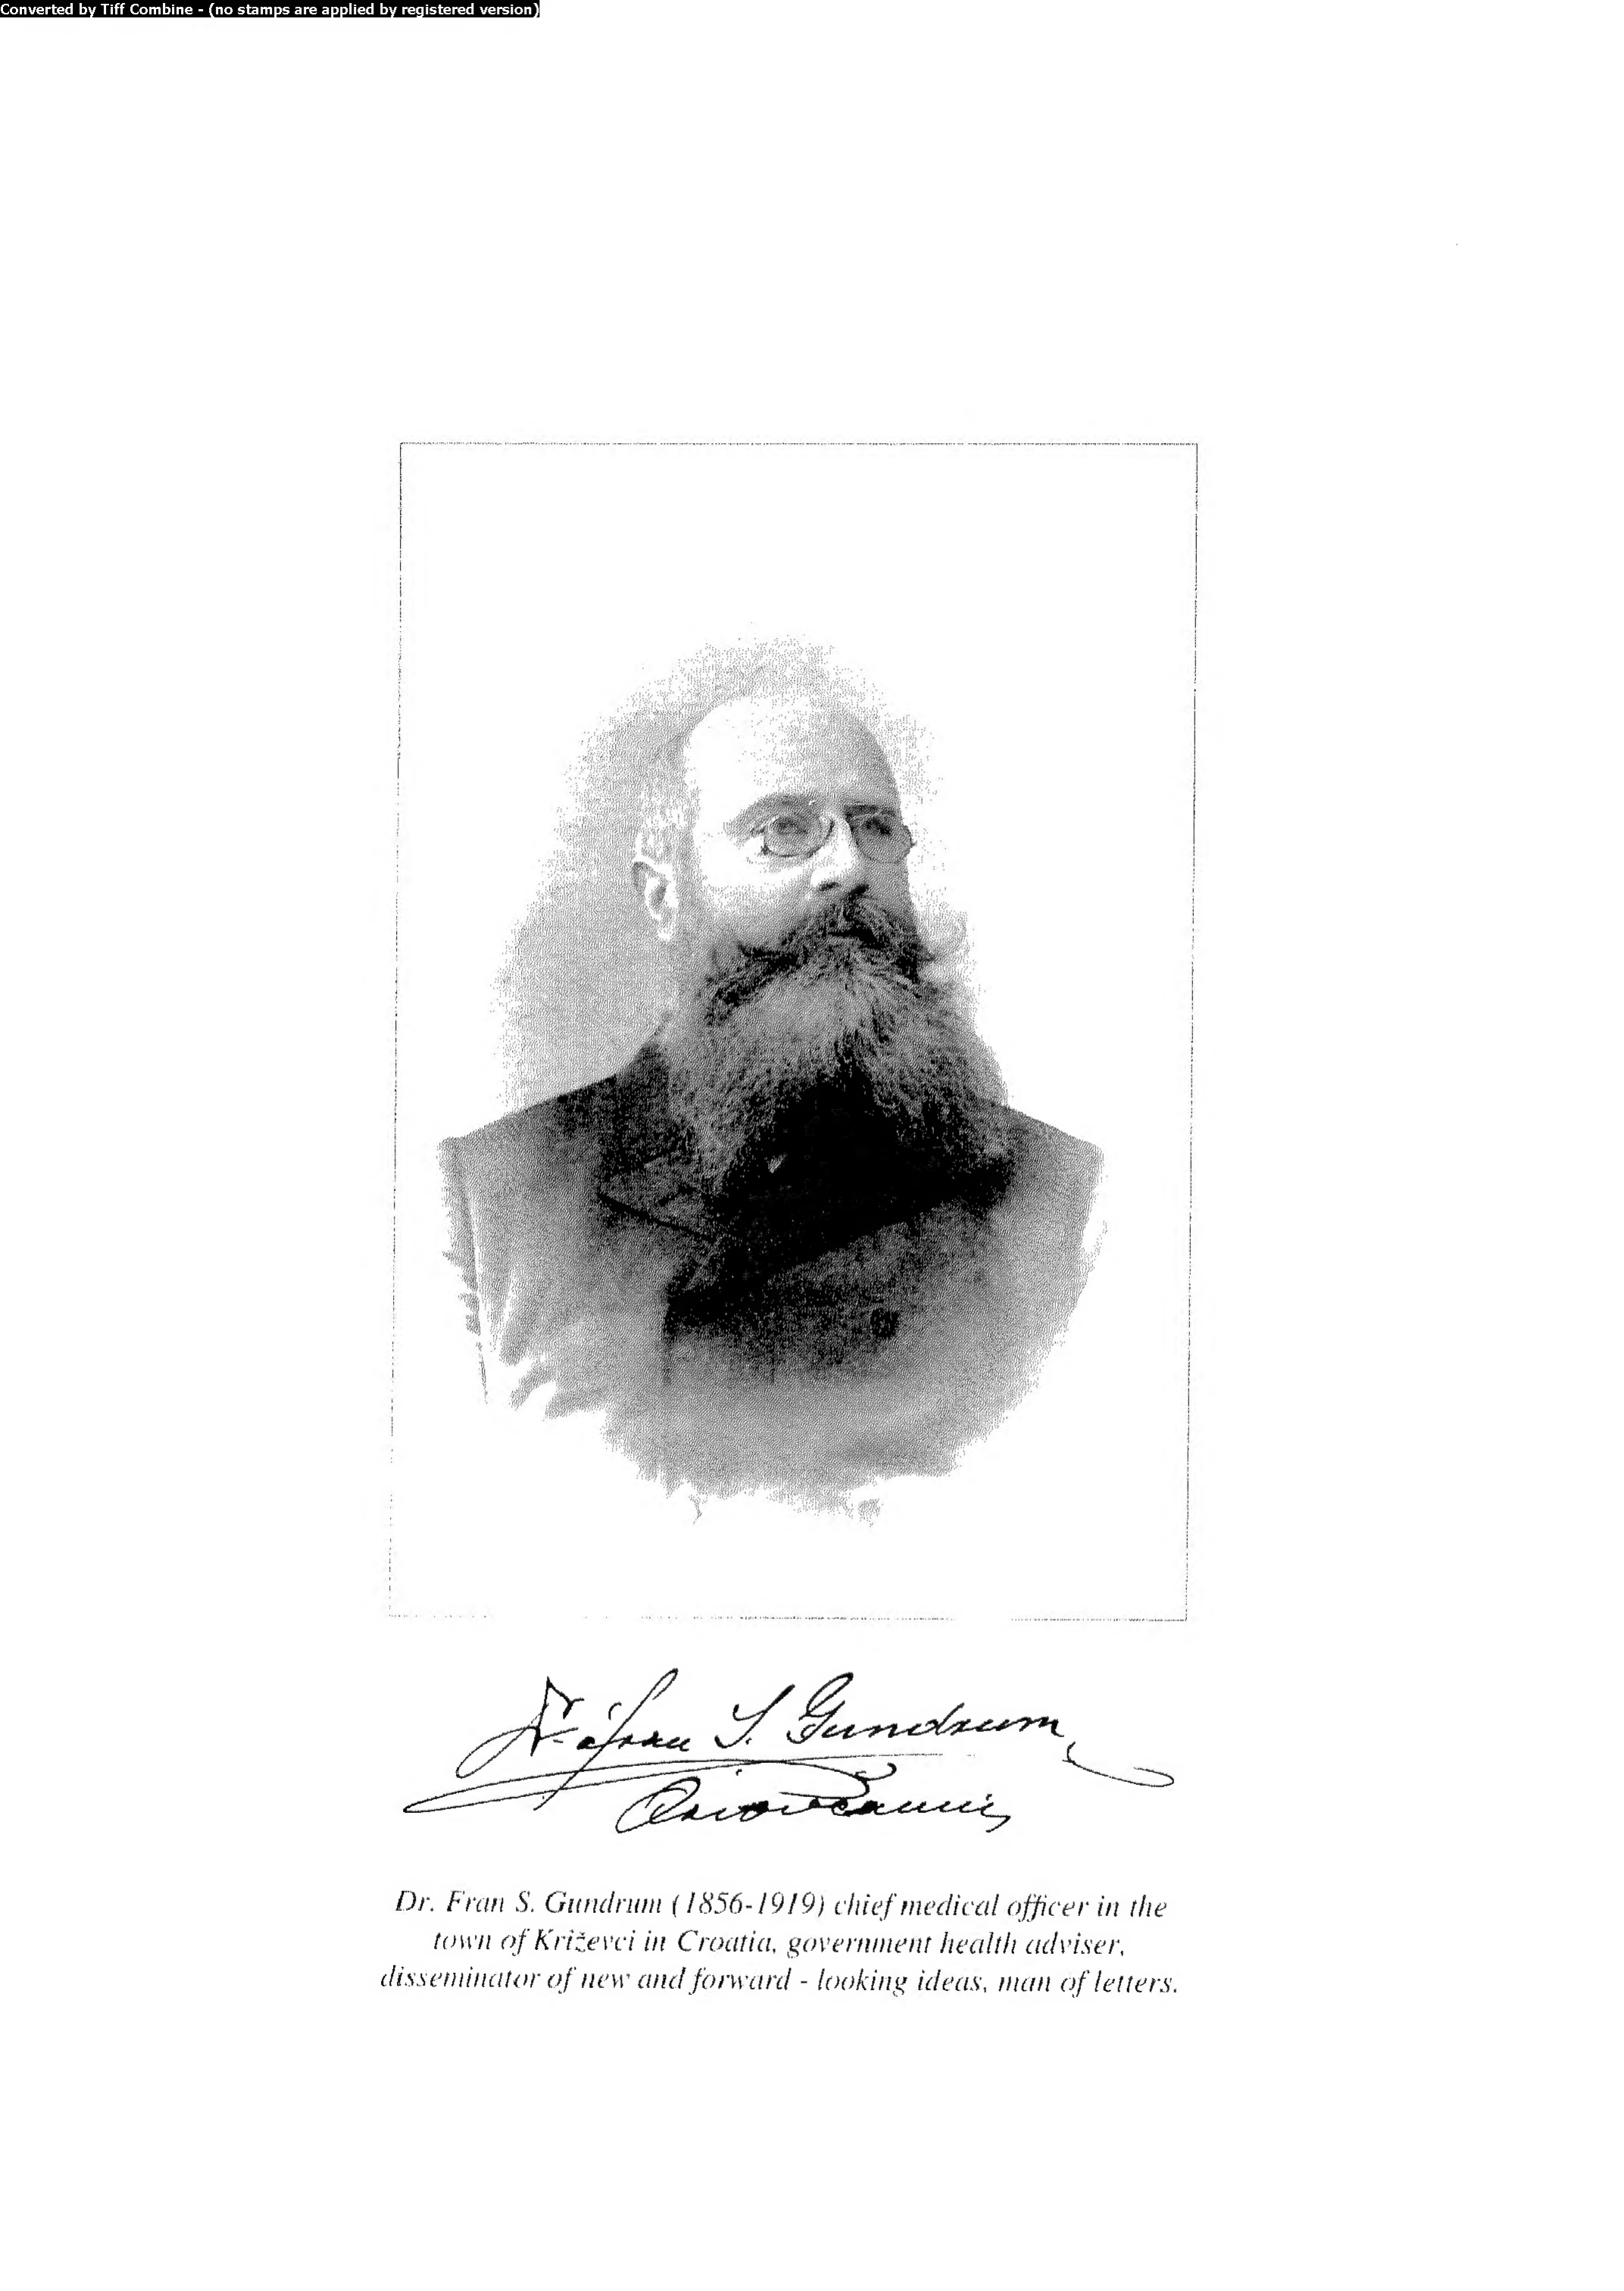 Converted by Tiff Combine - (no stamps are applied by registered version)
Dr. Fran S. Gundrum
Oriovčanin
Dr. Fran S. Gundrum (1856-1919) chief medical officer in the
town of Križevci in Croatia, government health adviser,
disseminator of new and forward - looking ideas, man of letters.